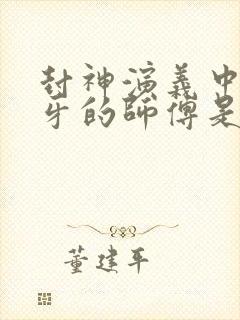 封神演義中
牙的師傅是
董建平